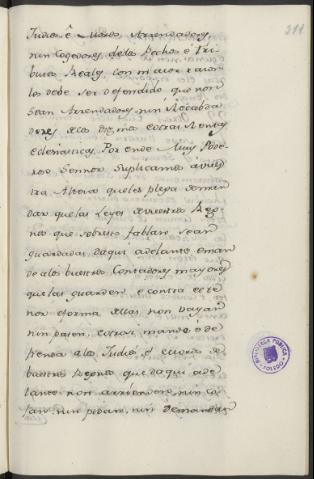 211
Judios é Moros Arrendadores,
nin Cogedores delos Pechos é Tri-
butos Reales, con maior razon
les debe ser defendido que non
Sean Arrendadores, nin Recabda-
dores delos Diezmos é otras Rentas
Eclesiasticas, Por ende Muy Pode-
roso Sennor Suplicamos a vues-
tra Alteza queles plega de man-
dar que las Leyes de vuestros Reg-
nos que sobresto fablan, sean
guardadas de aqui adelante é man-
de alos buestros Contadores mayores
que las guarden é contra el te-
nor é forma dellas non vayan
nin pasen, é otrosi mande é de-
fienda alos Judios, é Moros de
buestros Regnos que da qui ade-
lante non arrienden nin co-
jan, nin pidan, nin demanden
BIBLIOTECA PUBLICA
TOLEDO